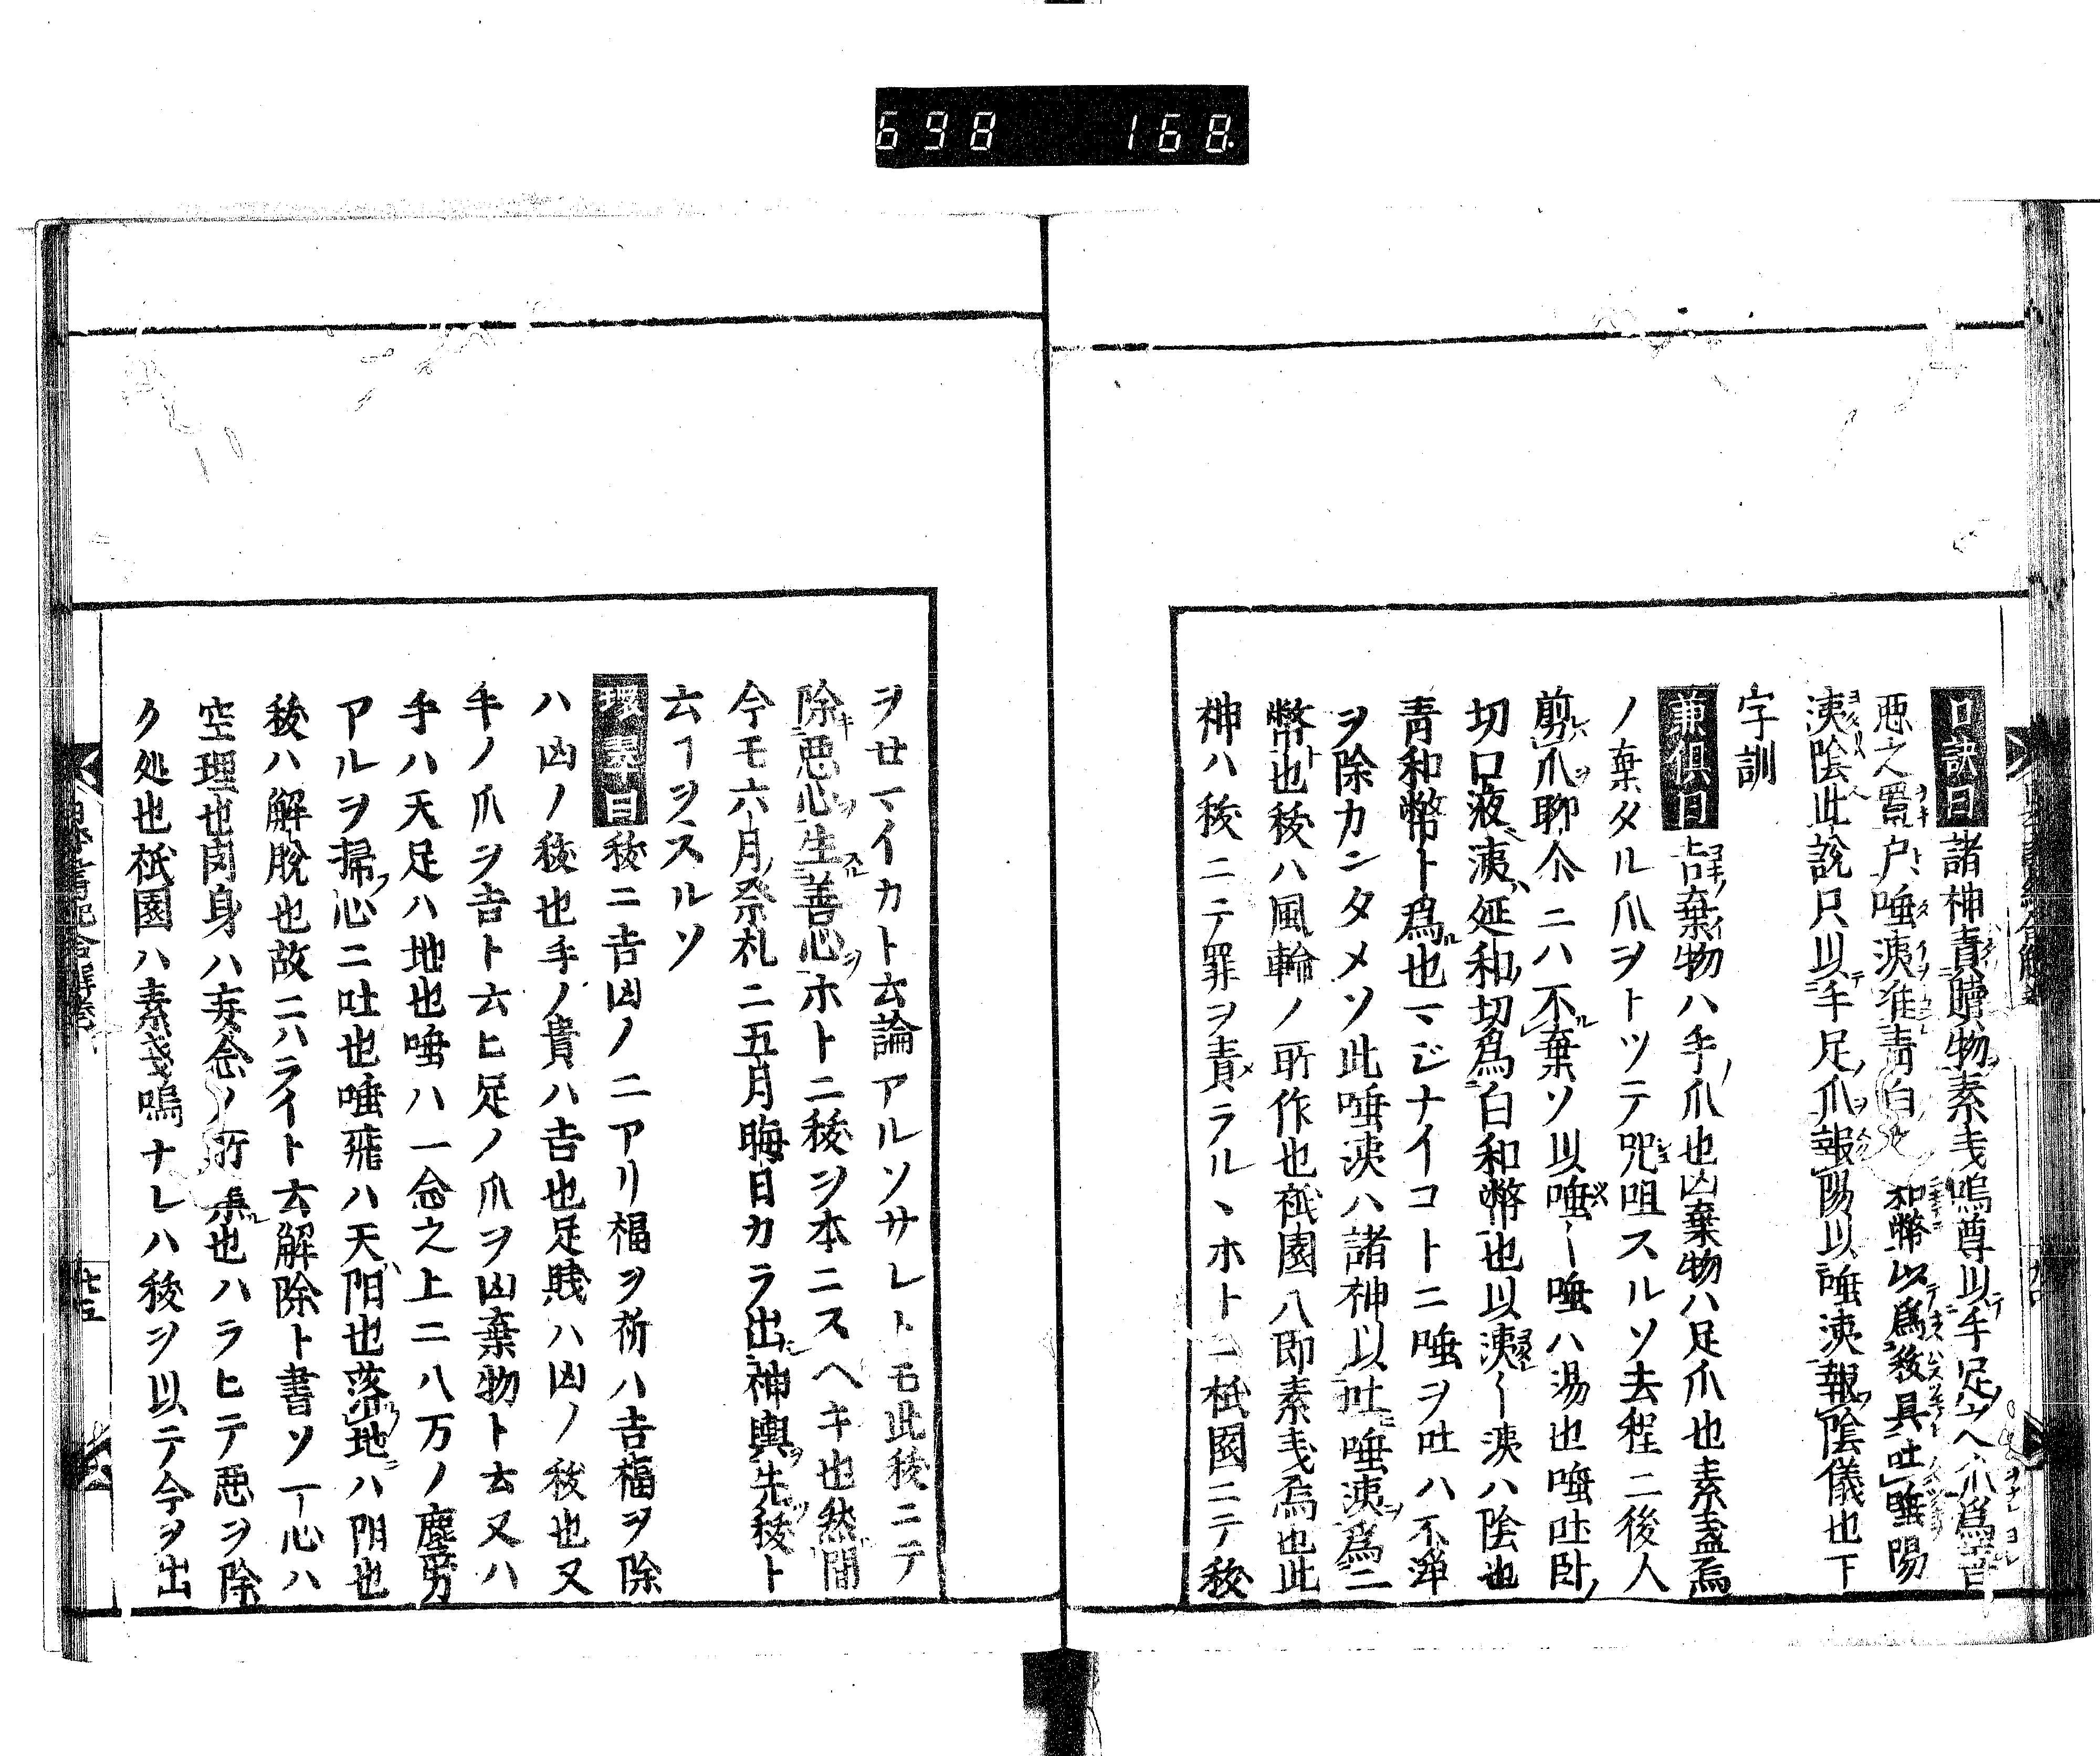 698 168
口訣曰諸神責贖物素戔嗚尊以手足爪為吉
悪之置戸唾洟准青白和幣以為秡具吐唾陽
洟陰此説只以手足爪報陽以唾洟報陰儀也下
字訓
兼倶曰吉棄物ハ手ノ爪也凶棄物ハ足爪也素盞烏
ノ棄タル爪ヲトツテ咒咀スルソ去程ニ後人
剪爪聊尒ニハ不棄ソ以唾ー唾ハ湯也唾吐時
切口液洟延和切為白和幣也以洟ー洟ハ陰也
青和幣ト為也マジナイコトニ唾ヲ吐ハ不浄
ヲ除カンタメソ此唾洟ハ諸神以吐唾洟為二
幣也秡ハ風輪ノ所作也祇園八即素戔烏也此
神ハ秡ニテ罪ヲ責ラルヽホトニ祇園ニテ秡
ヲ廿マイカト云論アルソサレトモ此秡ニテ
除悪心生善心ホトニ秡ヲ本ニスヘキ也然間
今モ六月祭礼ニ五月晦日カラ出神輿先秡ト
云ヿヲスルソ
環翠曰秡ニ吉凶ノ二アリ福ヲ祈ハ吉福ヲ除
ハ凶ノ秡也手ノ貴ハ吉也足賤ハ凶ノ秡也又
手ノ爪ヲ吉ト云ヒ足ノ爪ヲ凶棄物ト云又ハ
手ハ天足ハ地也唾ハ一念之上ニ八万ノ塵労
アルヲ掃心ニ吐也唾飛ハ天陽也落地ハ陰也
秡ハ解脱也故ニハライト云解除ト書ソ一心ハ
空理也肉身ハ妄念ノ所乗也ハラヒテ悪ヲ除
ク処也祇園ハ素戔嗚ナレハ秡ヲ以テ今ヲ出